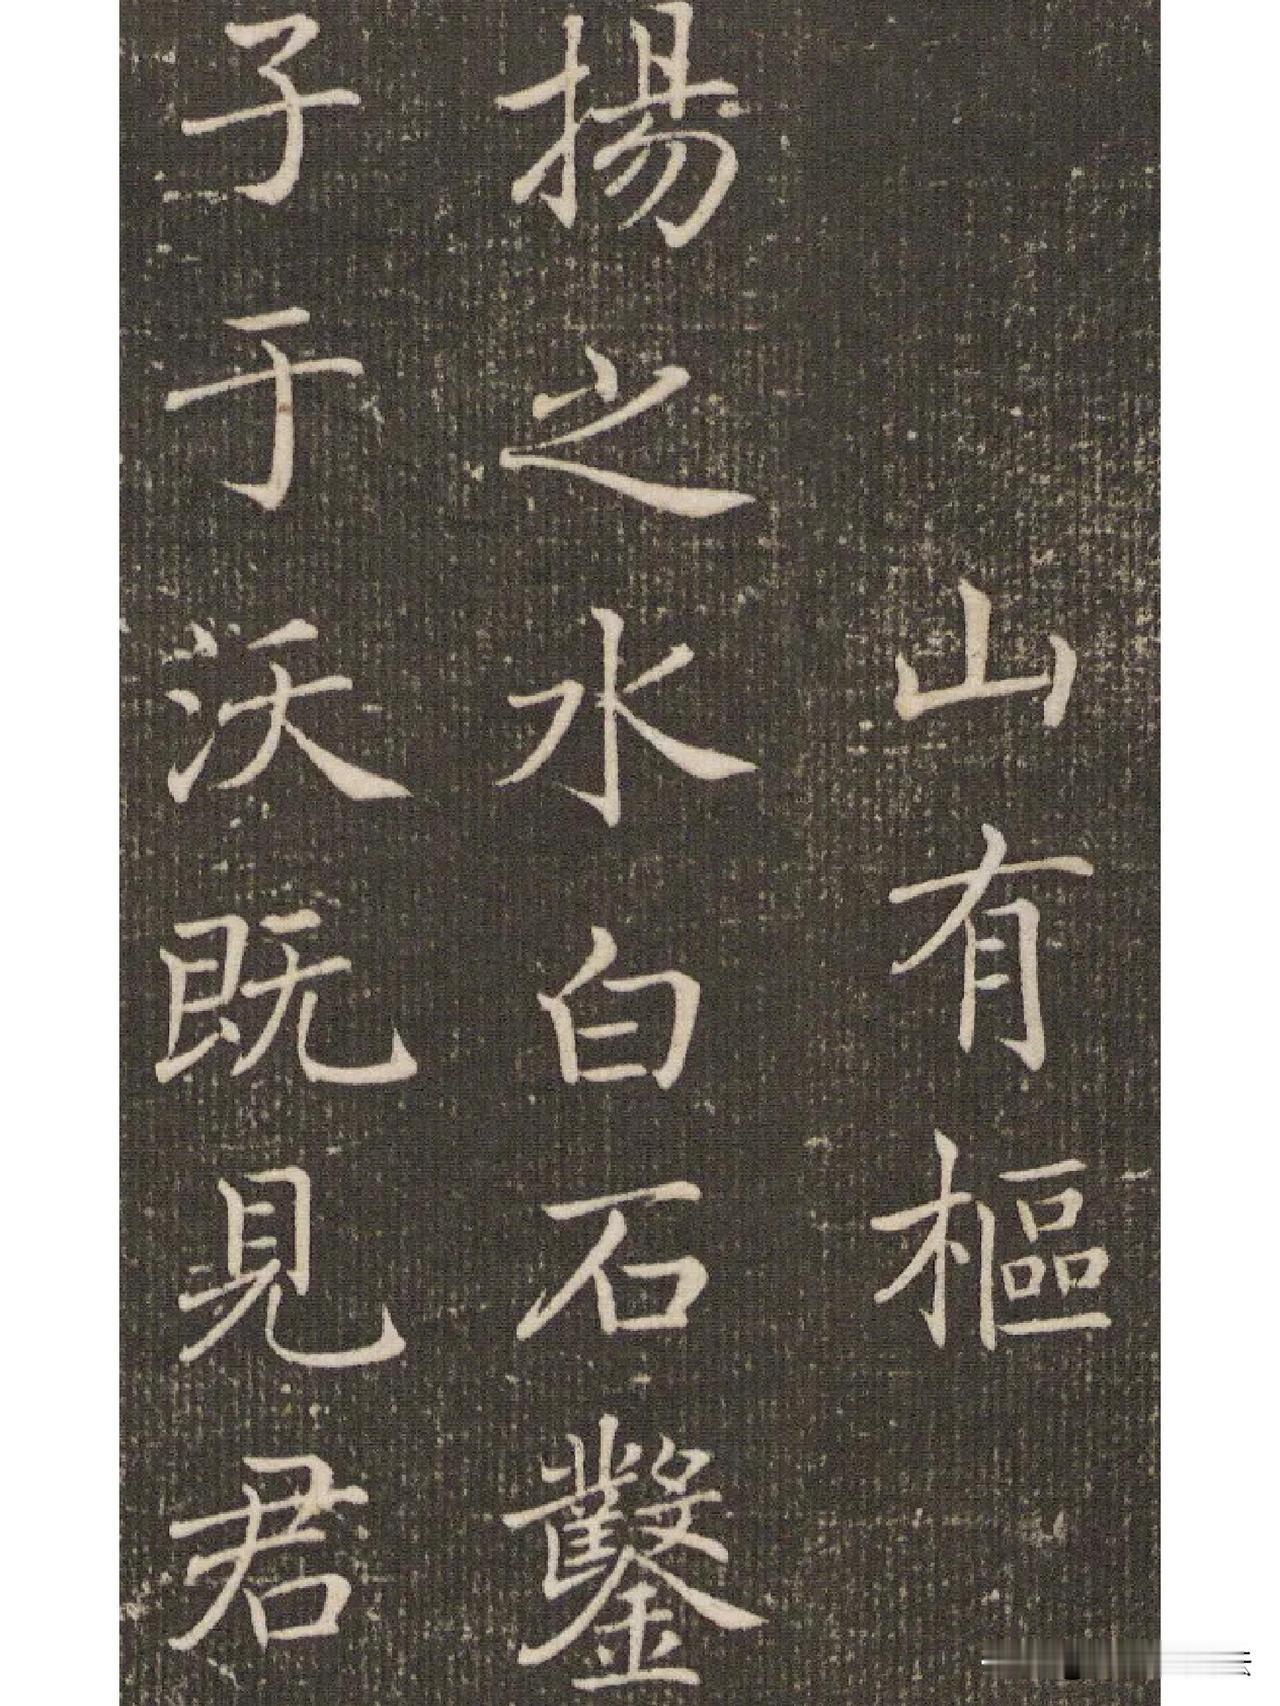 山有樞
揚之水白石鑿
子于沃既見君